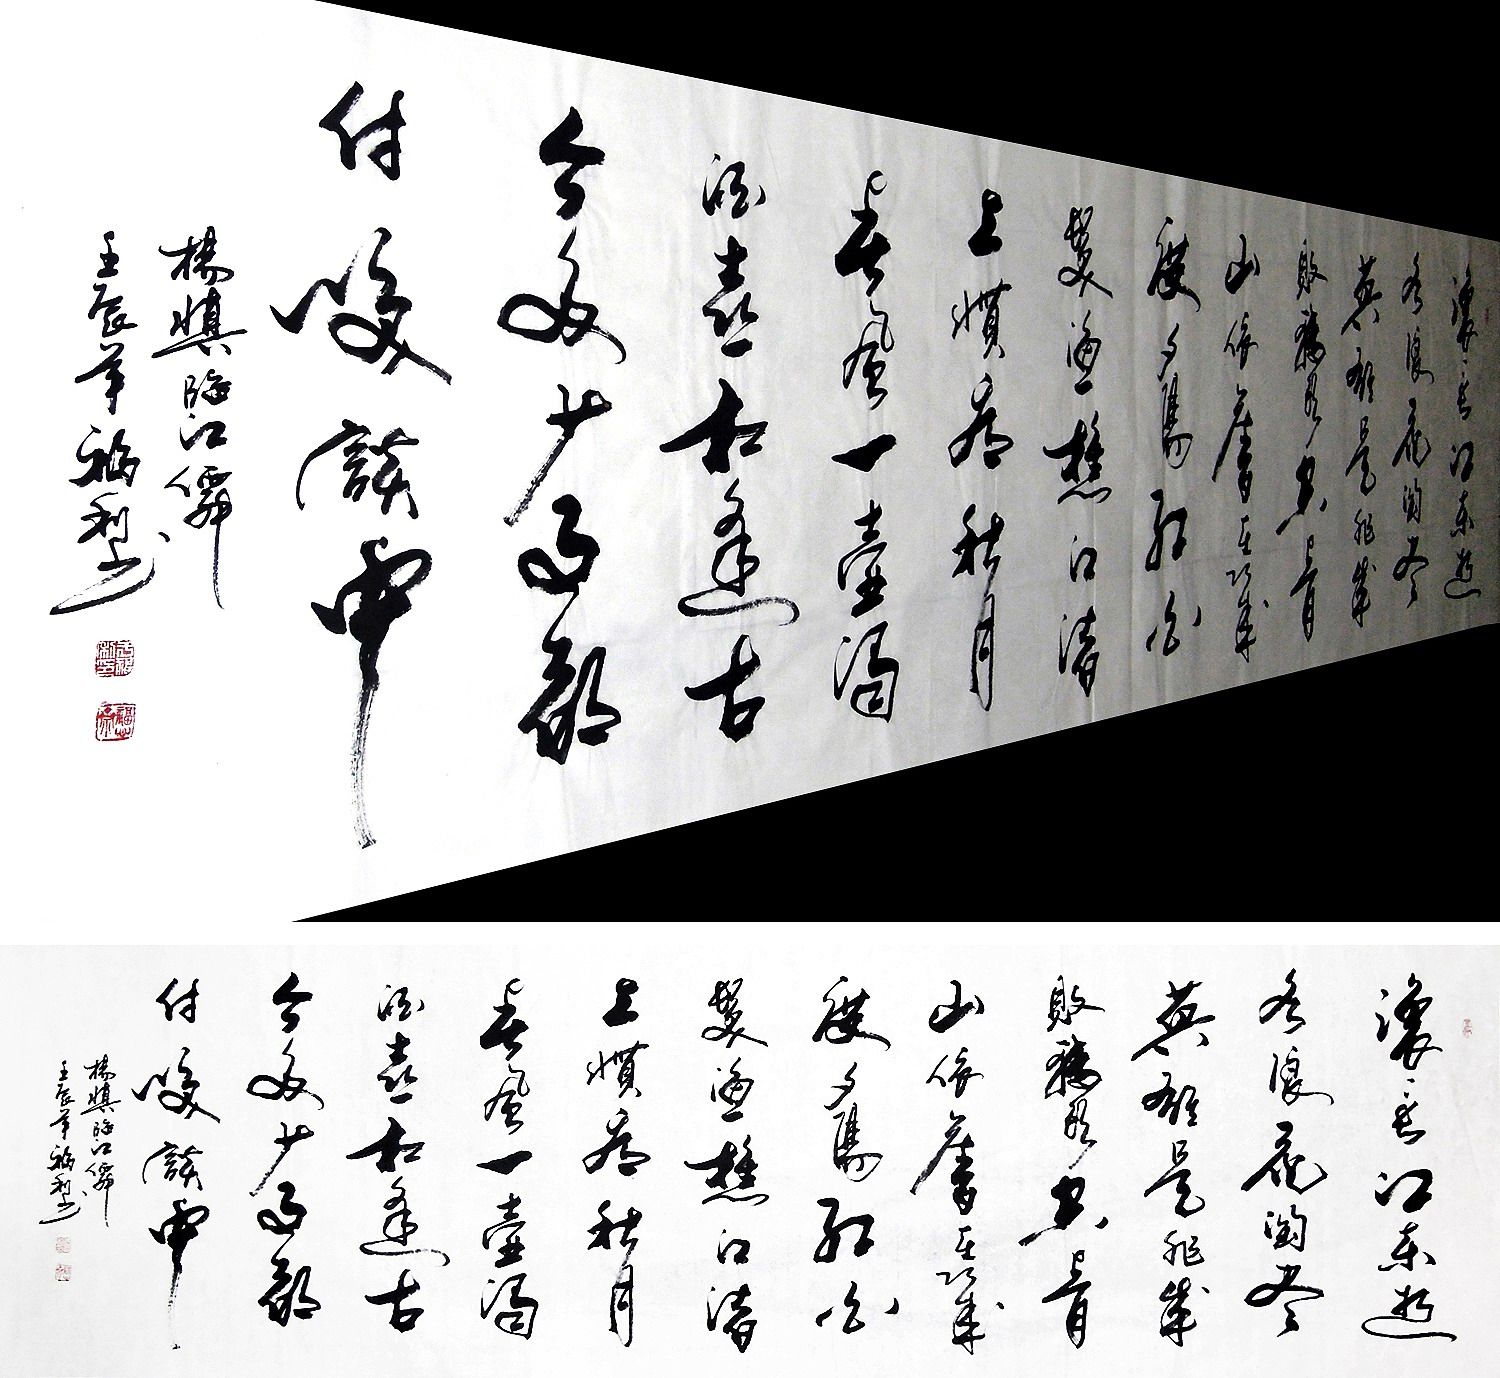 滚滚长江东逝
水浪花淘尽
英雄是非成
败转头空青
山依舊在幾
度夕陽红白
髮渔樵江渚
上慣看秋月
春風一壶濁
酒喜相逢古
今多少事都
付咲談中
楊慎臨江僊
壬辰年福利书
滚滚长江东逝
水浪花淘尽
英雄是非成
败转头空青
山依舊在幾
度夕陽红白
髮渔樵江渚
上慣看秋月
春風一壶濁
酒喜相逢古
今多少事都
付咲談中
楊慎臨江僊
壬辰年福利书